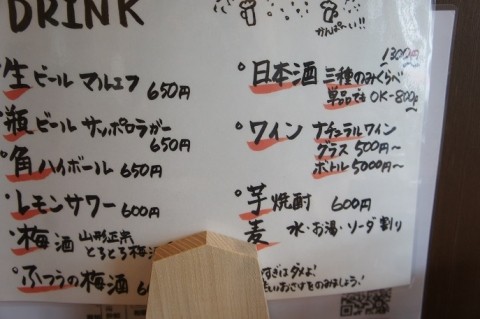 DRINK
かんぱーい!!
生ビール マルエフ 650円
瓶ビール サッポロラガー
650円
角ハイボール 650円
レモンサワー 600円
梅酒 山形正宗
とろとろ梅酒
ふつうの梅酒
1300円
日本酒 三種のみくらべ
単品でも OK-800円
ワイン ナチュラルワイン
グラス 500円〜
ボトル 5000円〜
芋焼酎 600円
麦 水・お湯・ソーダ割り
すぎはダメよ!
おさけをのみましょう!